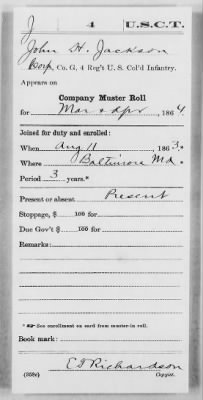 J 4 U.S.C.T.
John H. Jackson
Corp, Co. G, 4 Reg't U. S. Col'd Infantry.
Appears on
Company Muster Roll
for Mar & Apr, 1864.
Joined for duty and enrolled:
When Aug 11, 1863.*
Where Baltimore Md.
Period 3 years.*
Present or absent Present
Stoppage, $ 100 for
Due Gov't $ 100 for
Remarks:
* See enrollment on card from muster-in roll.
Book mark:
E T Richardson
(358d) Copyist.